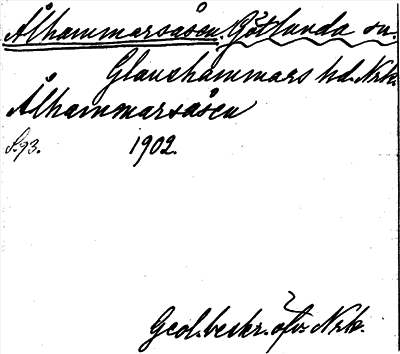 Ålhammarsåsen. Götlunda sn.
Glanshammars hd. Nrk.
Ålhammarsåsen
S. 93. 1902.
Geol. beskr. öfv. Nrk.